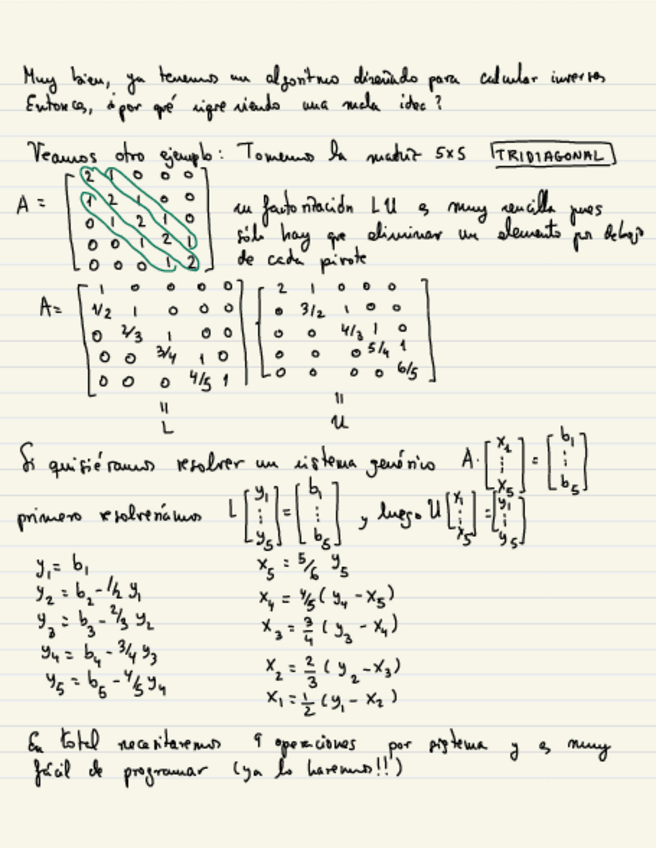 Muy bien, ya tenemos un algoritmo diseñado para calcular inversas
Entonces, ¿por qué sigue siendo una mala idea?
Veamos otro ejemplo: Tomemos la matriz 5x5 TRIDIAGONAL
A = [ 2 1 0 0 0
1 2 1 0 0
0 1 2 1 0
0 0 1 2 1
0 0 0 1 2 ]
su factorización LU es muy sencilla pues
sólo hay que eliminar un elemento por debajo
de cada pivote
A = [ 1 0 0 0 0 ] [ 2 1 0 0 0 ]
1/2 1 0 0 0   0 3/2 1 0 0
0 2/3 1 0 0   0 0 4/3 1 0
0 0 3/4 1 0   0 0 0 5/4 1
0 0 0 4/5 1   0 0 0 0 6/5
= =
L U
Si quisiéramos resolver un sistema genérico A·[x1 ⋮ x5] = [b1 ⋮ b5]
primero resolveríamos L[y1 ⋮ y5] = [b1 ⋮ b5] y luego U[x1 ⋮ x5] = [y1 ⋮ y5]
y1 = b1   x5 = 5/6 y5
y2 = b2 - 1/2 y1   x4 = 4/5 (y4 - x5)
y3 = b3 - 2/3 y2   x3 = 3/4 (y3 - x4)
y4 = b4 - 3/4 y3   x2 = 2/3 (y2 - x3)
y5 = b5 - 4/5 y4   x1 = 1/2 (y1 - x2)
En total necesitaremos 9 operaciones por sistema y es muy
fácil de programar (ya lo haremos!!)